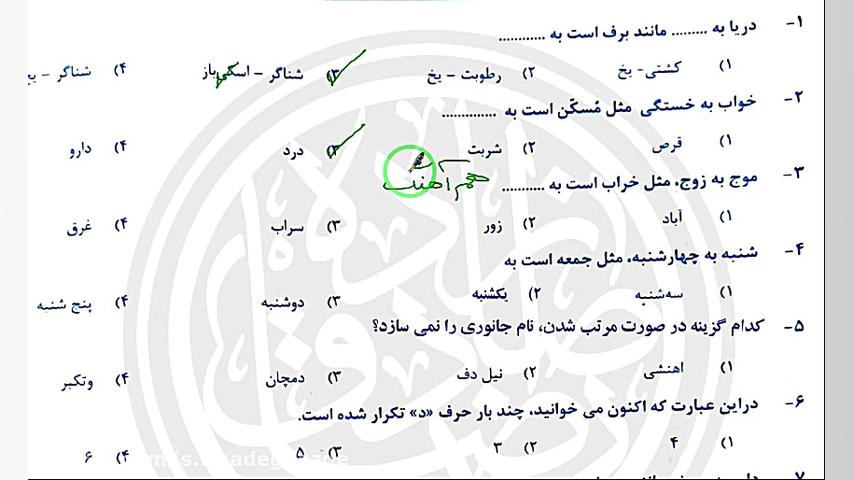 ۱- دریا به ......... مانند برف است به ............
۱) کشتی- یخ ۲) رطوبت – یخ ۳) شناگر – اسکی‌باز ۴) شناگر – یخ
۲- خواب به خستگی مثل مُسکّن است به ..............
۱) قرص ۲) شربت ۳) درد ۴) دارو
۳- موج به زوج، مثل خراب است به ...........
هم آهنگ
۱) آباد ۲) زور ۳) سراب ۴) غرق
۴- شنبه به چهارشنبه، مثل جمعه است به
۱) سه‌شنبه ۲) یکشنبه ۳) دوشنبه ۴) پنج شنبه
۵- کدام گزینه در صورت مرتب شدن، نام جانوری را نمی سازد؟
۱) اهنشی ۲) نیل دف ۳) دمچان ۴) وتکبر
۶- دراین عبارت که اکنون می خوانید، چند بار حرف «د» تکرار شده است.
۱) ۴ ۲) ۳ ۳) ۵ ۴) ۶
۷-